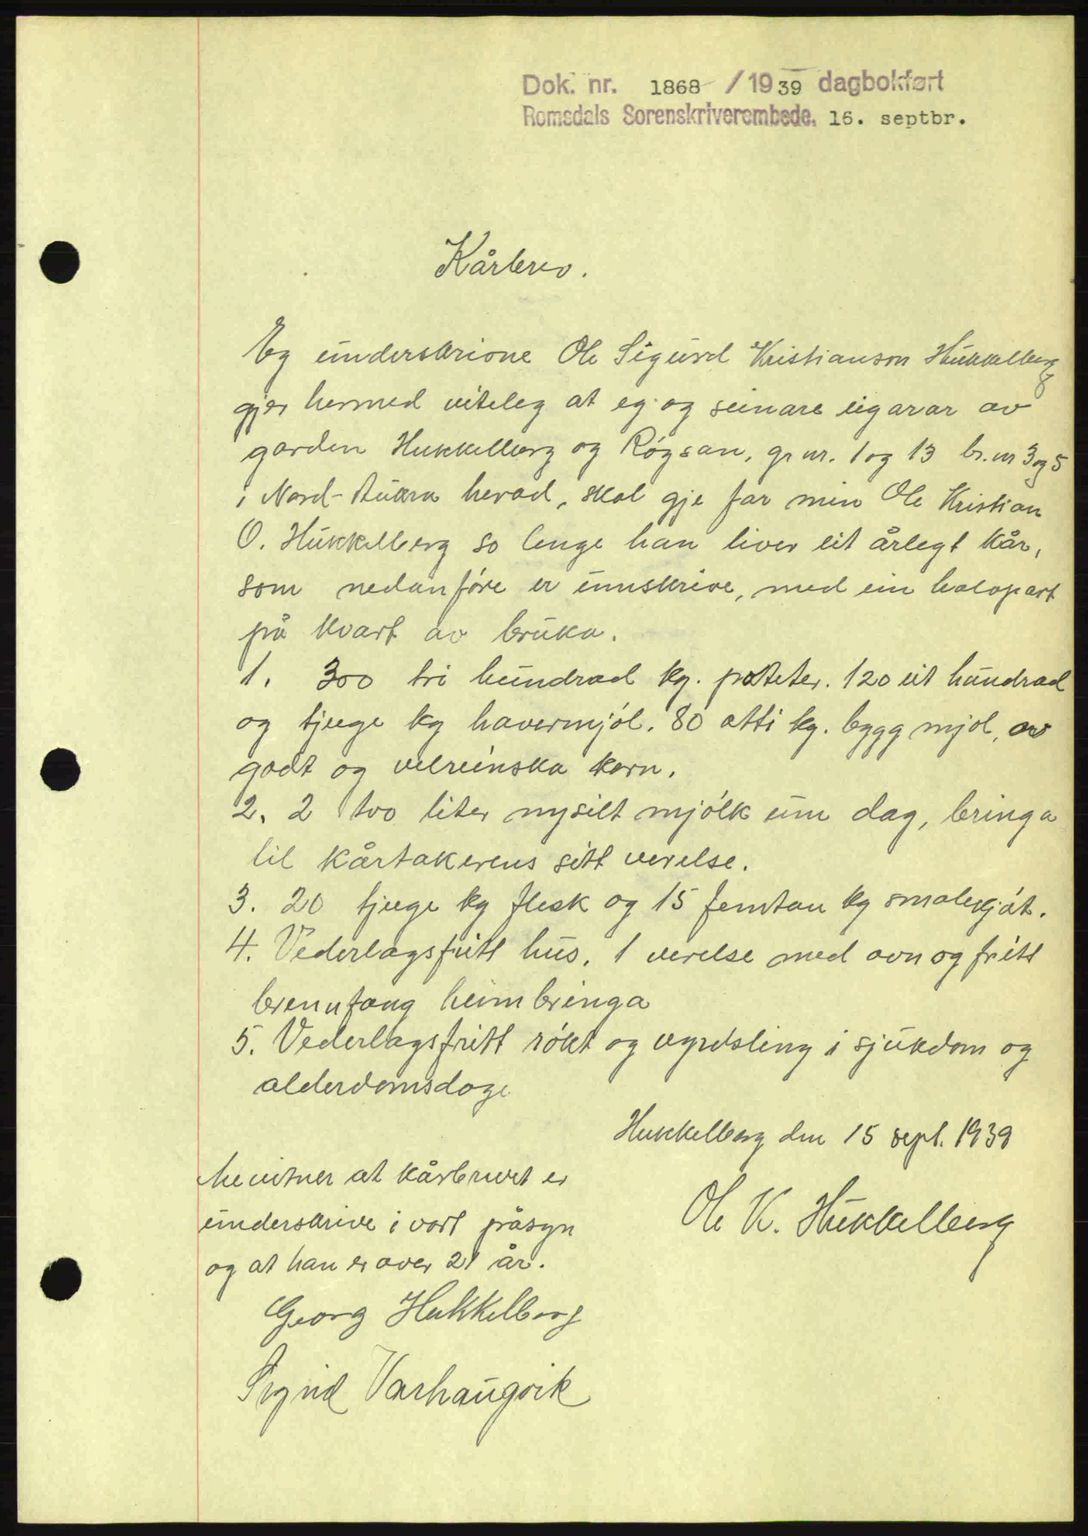 Dok. nr. 1868 / 1939 dagbokført
Romsdals Sorenskriverembede, 16. septbr.
Kårbrev.
Eg underskrivne Ole Sigurd Kristianson Hukkelberg
gjer hermed viteleg at eg og seinare eigarar av
garden Hukkelberg og Røgsan, gr nr. 1 og 13 br. nr 3 og 5
i Nord-Aukra herad, skal gje far min Ole Kristian
O. Hukkelberg so lenge han liver eit årlegt kår,
som nedanføre er innskrive, med ein halvpart
på kvart av bruka.
1. 300 tri hundrad kg. poteter. 120 eit hundrad
og tjuge kg havermjøl. 80 otti kg. bygg mjøl, av
godt og velreinska korn.
2. 2 tvo liter nysilt mjølk um dag, bringa
til kårtakerens sitt verelse.
3. 20 tjuge kg flesk og 15 femtan kg smalekjøt.
4. Vederlagsfritt hus, 1 verelse med ovn og fritt
brennfang heimbringa
5. Vederlagsfritt røkt og vyrdsling i sjukdom og
alderdomsdage
Hukkelberg den 15 sept. 1939
Me vitner at kårbrevet er
underskrive i vort påsyn
og at han er over 21 år.
Ole K. Hukkelberg
Georg Hukkelberg
Sigrid Varhaugvik